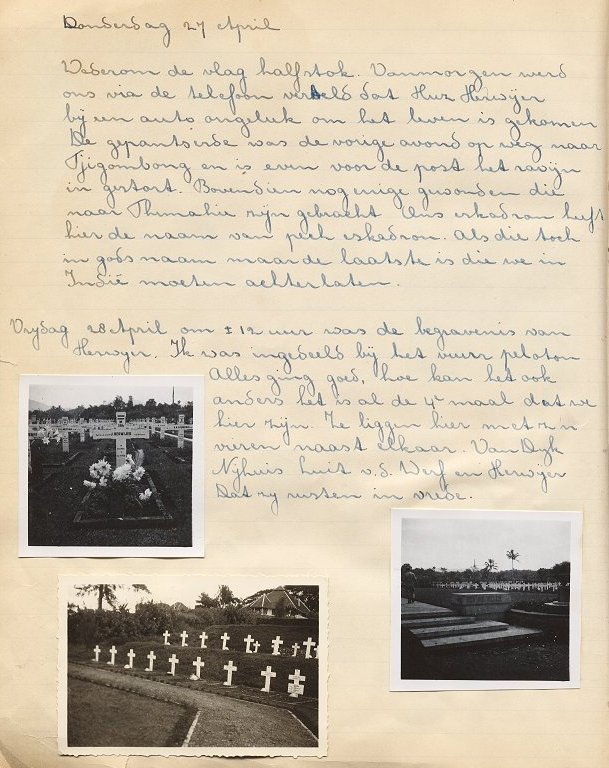 Donderdag 27 April
Wederom de vlag halfstok. Vanmorgen werd
ons via de telefoon verteld dat Huz Herwijer
bij een auto ongeluk om het leven is gekomen
De gepantserde was de vorige avond op weg naar
Tjigombong en is even voor de post het ravijn
in gestort. Bovendien nog enige gewonden die
naar Thimahie zijn gebracht. Ons eskadron heeft
hier de naam van pech eskadron. Als die toch
in gods naam maar de laatste is die we in
Indië moeten achterlaten.
Vrijdag 28 April om ± 12 uur was de begravenis van
Herwijer. Ik was ingedeeld bij het vuur peloton
Alles ging goed, hoe kan het ook
anders het is al de 4e maal dat we
hier zijn. Ze liggen hier met z'n
vieren naast elkaar. Van Dijk
Nyhuis luit v.d. Werf en Herwijer
Dat zy rusten in vrede.